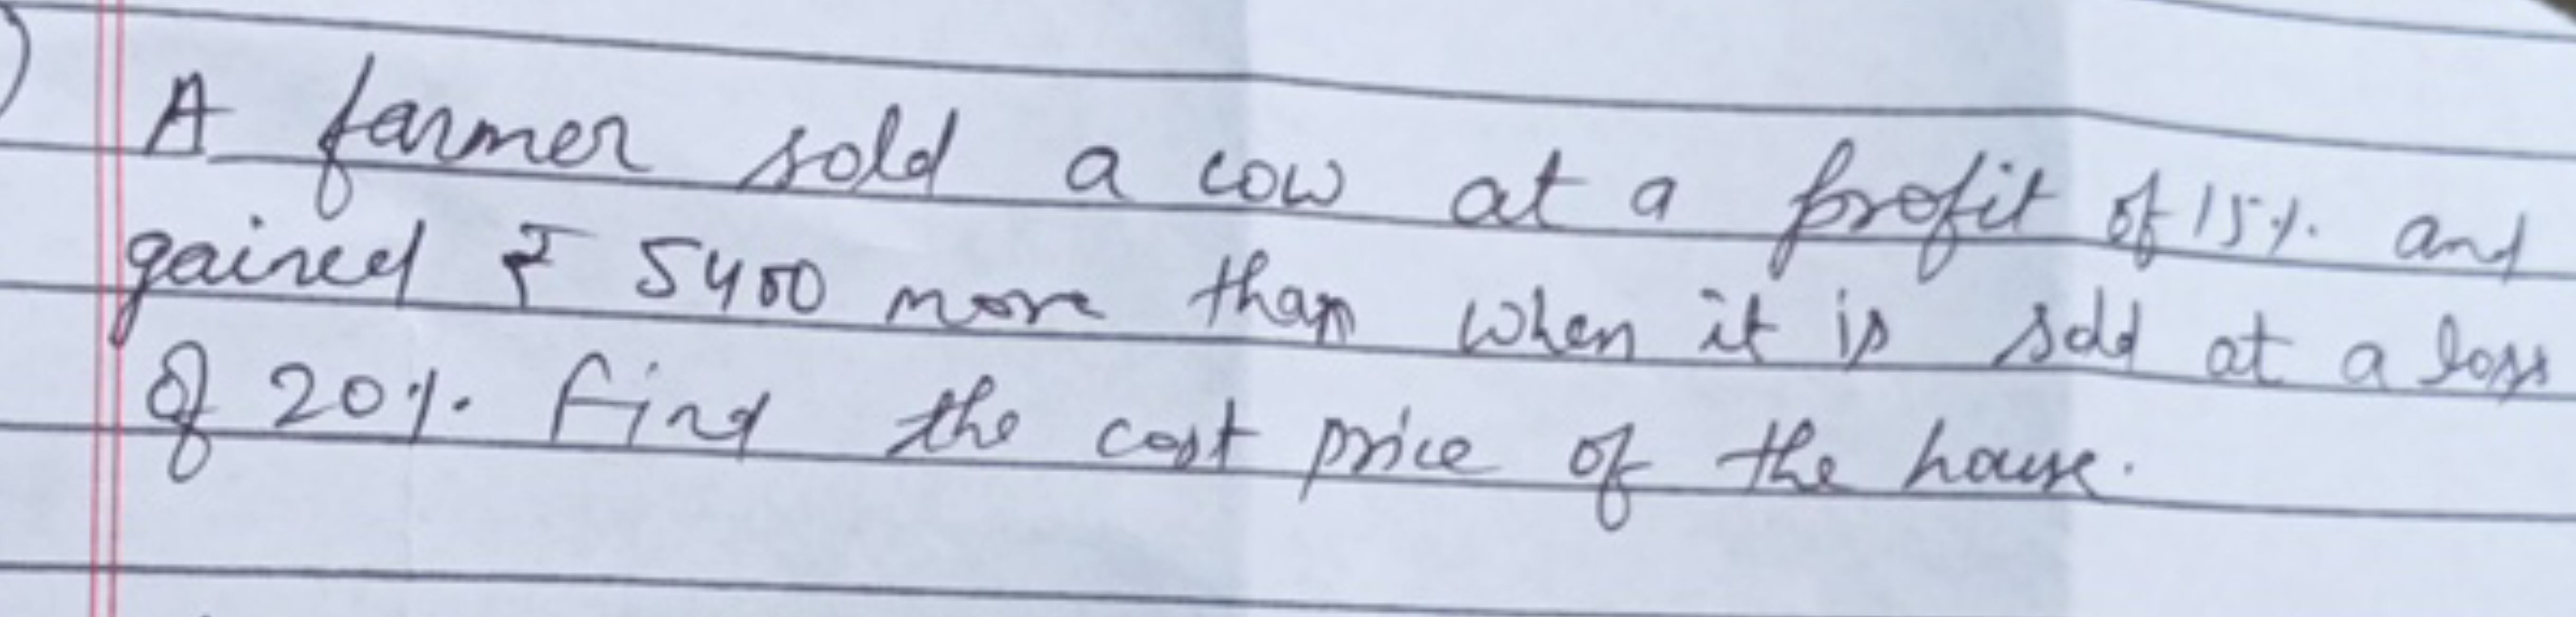 A farmer sold a cow at a profit of 15% and
gained ₹ 5400 more than when it is sold at a loss
of 20%. Find the cost price of the house.